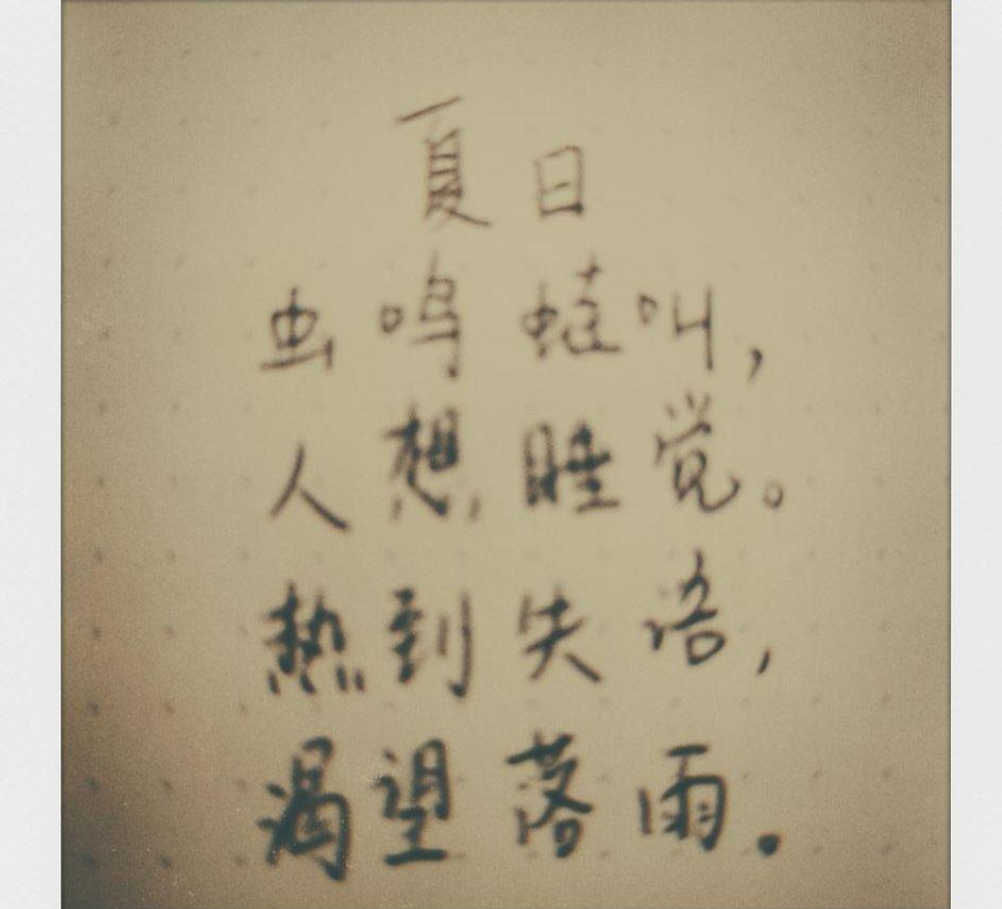 夏日
虫鸣蛙叫，
人想睡觉。
热到失语，
渴望落雨。